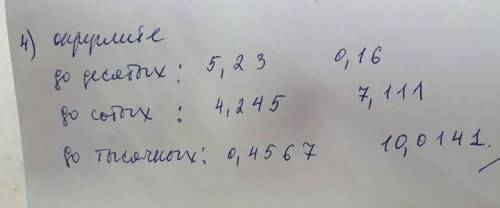 4) округлите
до десятых: 5,23 0,16
до сотых: 4,245 7,111
до тысячных: 0,4567 10,0141.